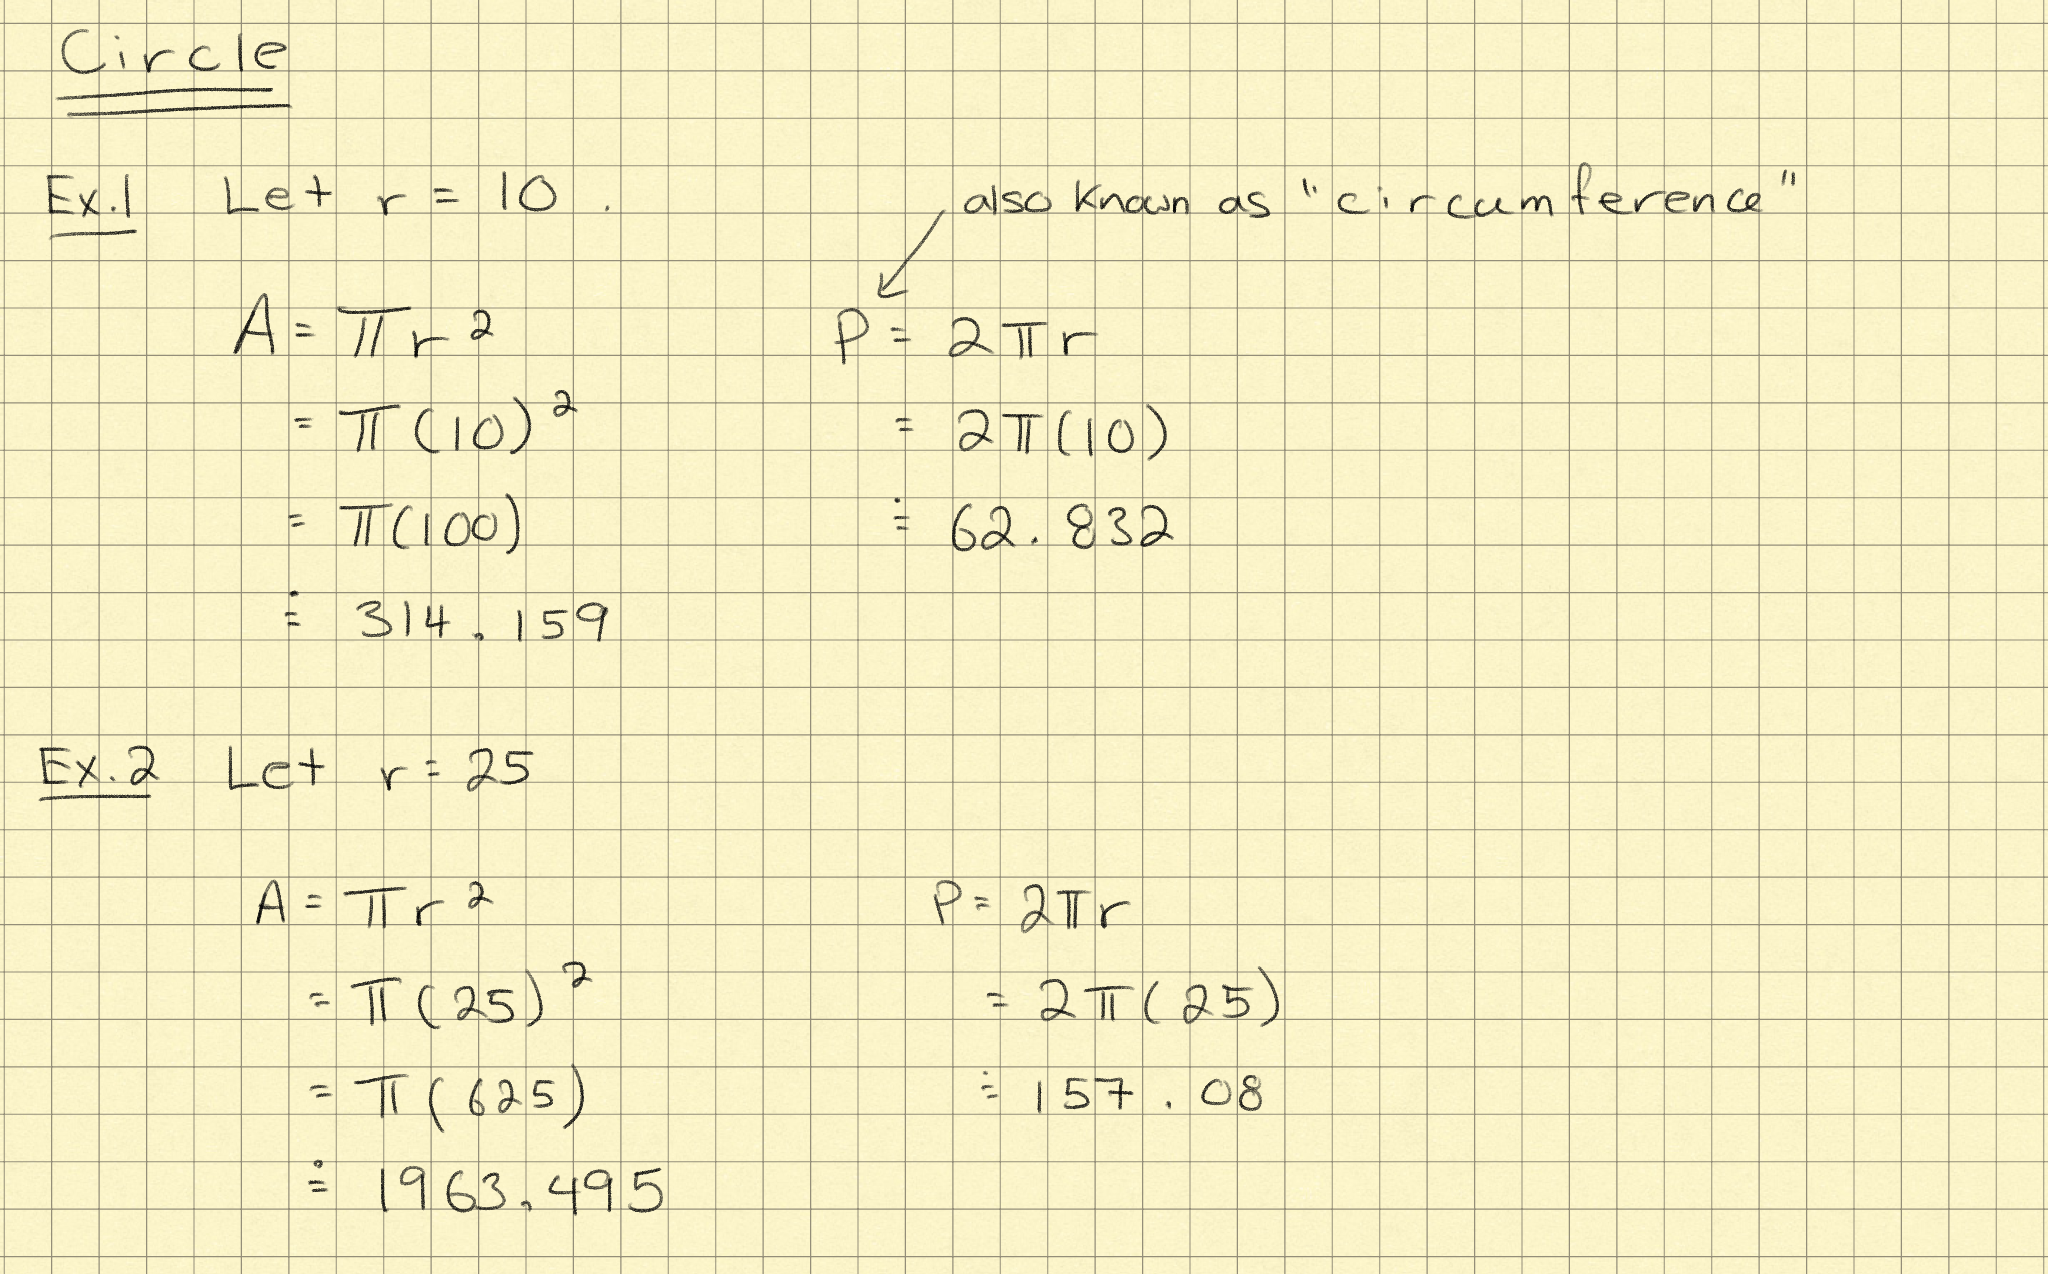 Circle
Ex.1 Let r = 10 .
also known as "circumference"
A = πr²
= π(10)²
= π(100)
≐ 314.159
P = 2πr
= 2π(10)
≐ 62.832
Ex.2 Let r = 25
A = πr²
= π(25)²
= π(625)
≐ 1963.495
P = 2πr
= 2π(25)
≐ 157.08